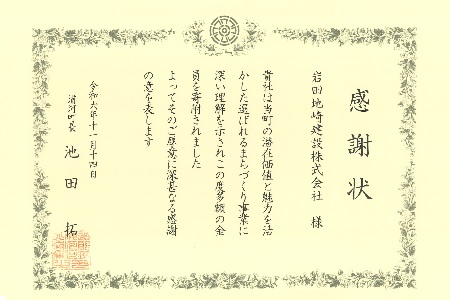 感謝状
岩田地崎建設株式会社 様
貴社は当町の潜在価値と魅力を活
かした選ばれるまちづくり事業に
深い理解を示されこの度多額の金
員を寄附されました
よってそのご厚意に深甚なる感謝
の意を表します
令和六年十一月十四日
清河町長 池田 拓